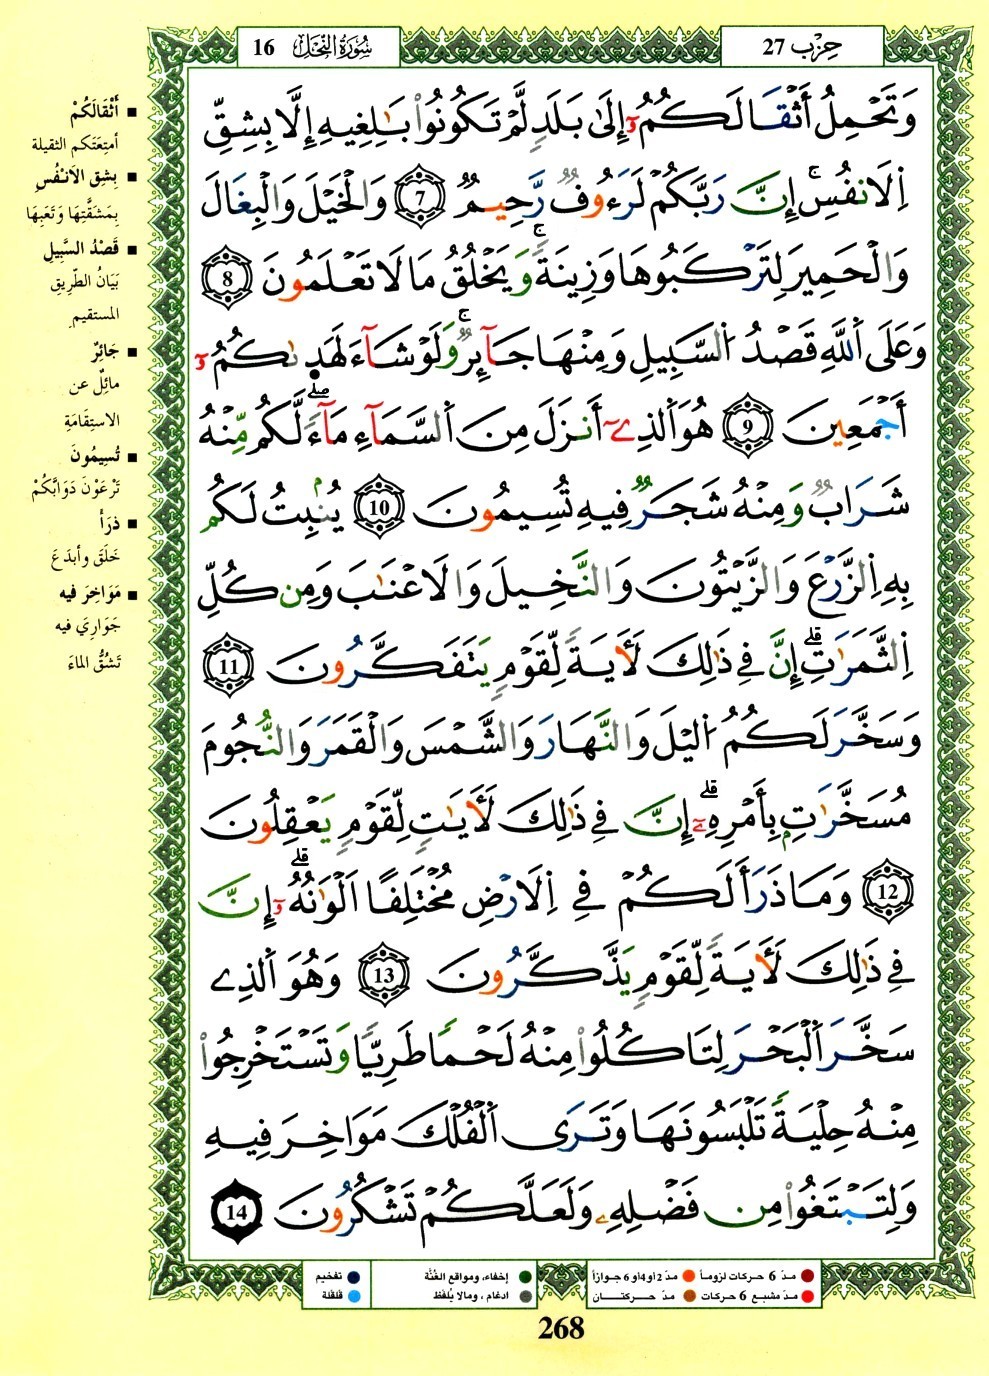 حِزْب 27
سُورَةُ النَّحْل 16
وَتَحْمِلُ أَثْقَالَكُمُۥٓ إِلَىٰ بَلَدٍ لَّمْ تَكُونُواْ بَٰلِغِيهِ إِلَّا بِشِقِّ
اِ۬لَانفُسِۚ إِنَّ رَبَّكُمْ لَرَءُوفٌ رَّحِيمٌ 7 وَالْخَيْلَ وَالْبِغَالَ
وَالْحَمِيرَ لِتَرْكَبُوهَا وَزِينَةًۚ وَيَخْلُقُ مَا لَا تَعْلَمُونَ 8
وَعَلَى اَ۬للَّهِ قَصْدُ اُ۬لسَّبِيلِ وَمِنْهَا جَآئِرٌۚ وَلَوْ شَآءَ لَهَدٜىٰكُمُۥٓ
أَجْمَعِينَ 9 هُوَ اَ۬لذِےٓ أَنزَلَ مِنَ اَ۬لسَّمَآءِ مَآءًۖ لَّكُم مِّنْهُ
شَرَابٌ وَمِنْهُ شَجَرٌ فِيهِ تُسِيمُونَ 10 يُنۢبِتُ لَكُم
بِهِ اِ۬لزَّرْعَ وَالزَّيْتُونَ وَالنَّخِيلَ وَالَاعْنَٰبَ وَمِن كُلِّ
اِ۬لثَّمَرَٰتِۗ إِنَّ فِي ذَٰلِكَ لَأٓيَةً لِّقَوْمٍ يَتَفَكَّرُونَ 11
وَسَخَّرَ لَكُمُ اُ۬ليْلَ وَالنَّهَارَ وَالشَّمْسَ وَالْقَمَرَ وَالنُّجُومَ
مُسَخَّرَٰتِۢ بِأَمْرِهِۦٓۗ إِنَّ فِي ذَٰلِكَ لَأٓيَٰتٍ لِّقَوْمٍ يَعْقِلُونَ
12 وَمَا ذَرَأَ لَكُمْ فِي اِ۬لَارْضِ مُخْتَلِفًا اَلْوَٰنُهُۥٓۗ إِنَّ
فِي ذَٰلِكَ لَأٓيَةً لِّقَوْمٍ يَذَّكَّرُونَ 13 وَهُوَ اَ۬لذِے
سَخَّرَ اَ۬لْبَحْرَ لِتَاكُلُواْ مِنْهُ لَحْمًا طَرِيًّا وَتَسْتَخْرِجُواْ
مِنْهُ حِلْيَةً تَلْبَسُونَهَا وَتَرَى اَ۬لْفُلْكَ مَوَاخِرَ فِيهِ
وَلِتَبْتَغُواْ مِن فَضْلِهِۦ وَلَعَلَّكُمْ تَشْكُرُونَ 14
■ أَثْقَالَكُمْ
أمتِعَتَكم الثقيلة
■ بِشِقِ الَانْفُسِ
بِمَشَقَّتِهَا وَتَعَبِهَا
■ قَصْدُ السَّبِيلِ
بَيَانُ الطَّرِيقِ
المستقيم
■ جَائِرٌ
مائِلٌ عن
الاستِقَامَةِ
■ تُسِيمُونَ
تَرْعَوْنَ دَوَابَّكُمْ
■ ذرَأَ
خَلَقَ وأبدَعَ
■ مَوَاخِرَ فيه
جَوَارِيَ فيه
تَشُقُّ الماءَ
مدّ 6 حركات لزوماً
مدّ 2 أو 4 أو 6 جوازاً
إخفاء، ومواقع الغُنَّة
تفخيم
مدّ مشبع 6 حركات
مدّ حركتان
ادغام ، ومالا يُلفظ
قلقلة
268